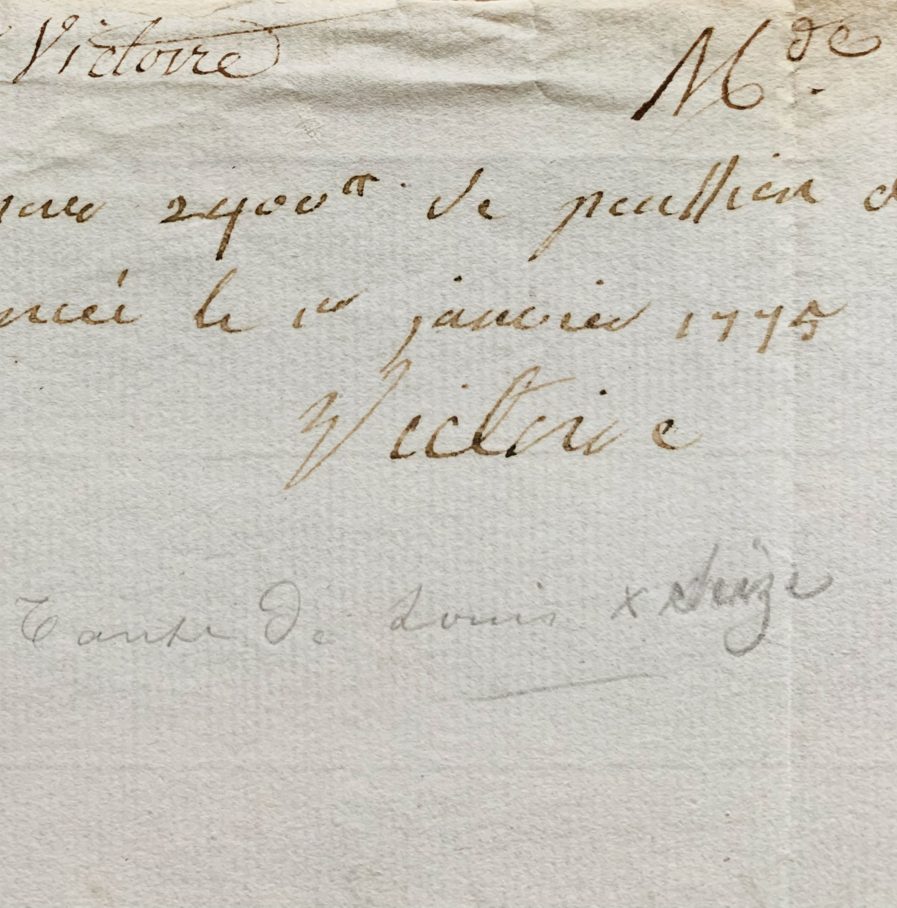 Victoire Mde.
2400tt de penssion
le 1er janvier 1775
Victoire
Tante de Louis x Seize